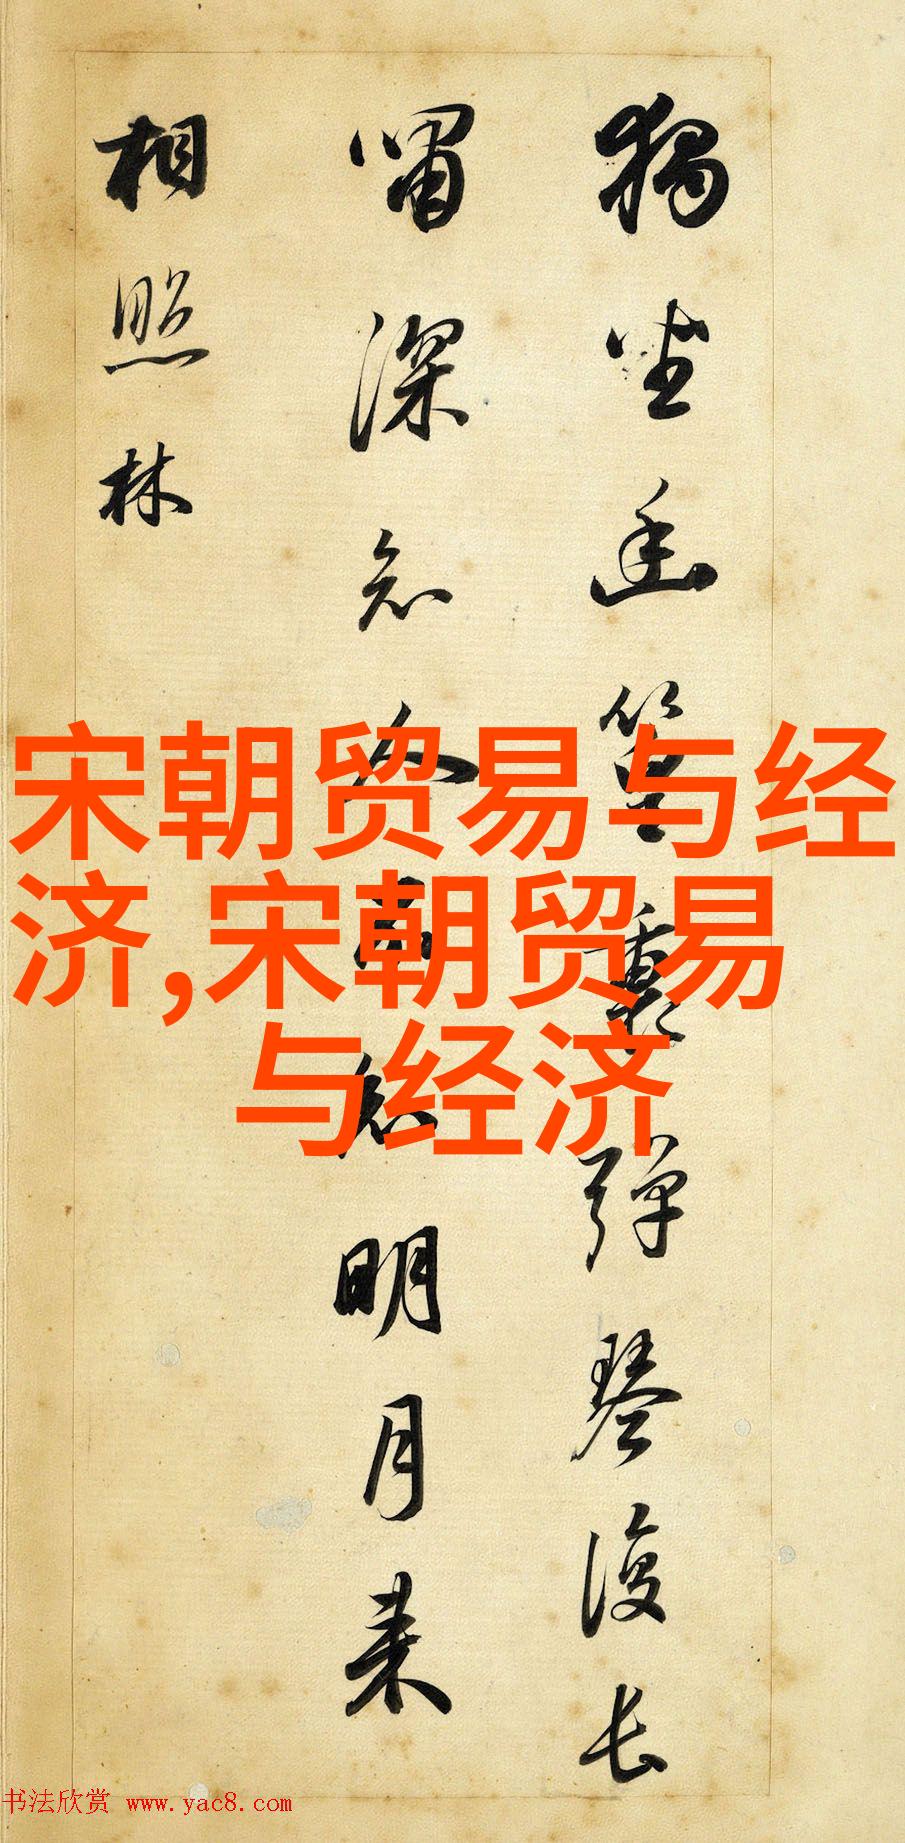 獨坐幽篁裏彈琴復長
嘯深知人不知明月來
相照林
宋朝贸易与经
济,宋朝贸易
与经济
书法欣赏 www.yac8.com